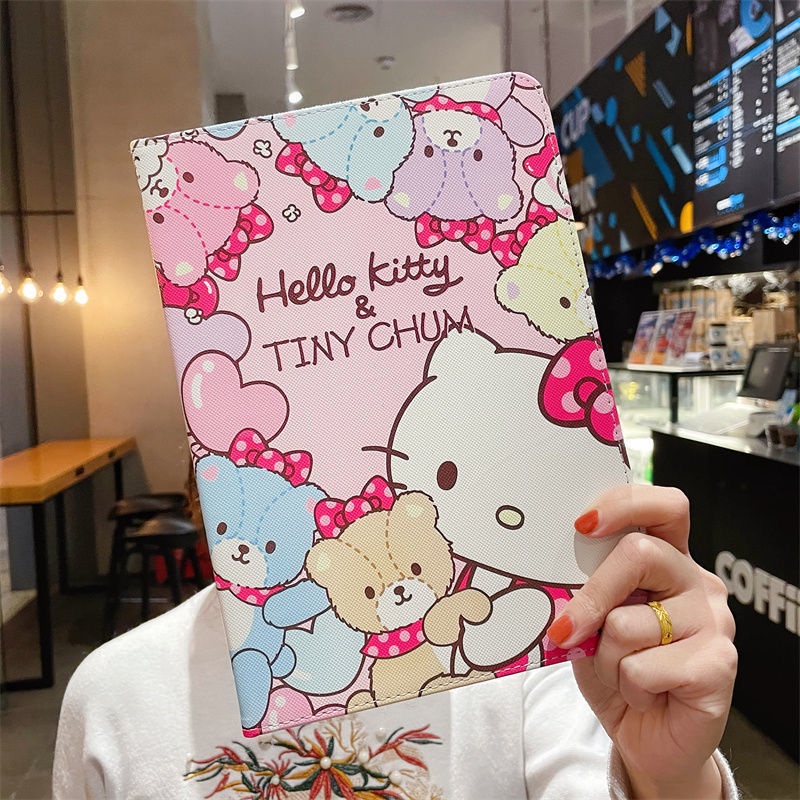 Hello Kitty
&
TINY CHUM
CUP
COFFi